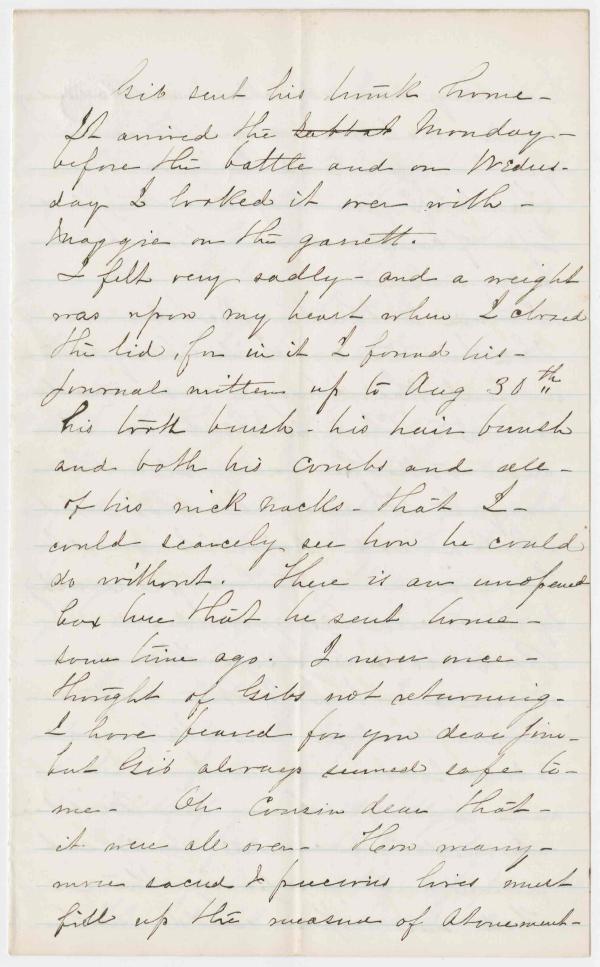 Gib sent his trunk home -
It arrived the Sabbat Monday -
before the battle and on Wednes-
day I looked it over with -
Maggie on the garrett.
I felt very sadly - and a weight
was upon my heart when I closed
the lid, for in it I found his -
Journal written up to Aug 30th
his tooth brush - his hair brush
and both his combs and all -
of his nick nacks - that I -
could scarcely see how he could
do without. There is an unopened
box here that he sent home -
some time ago. I never once -
thought of Gibs not returning -
I have feared for you dear Jim -
but Gib always seemed safe to -
me - Oh Cousin dear that -
it were all over - How many -
more sacred & precious lives must
fill up the measure of Atonement -